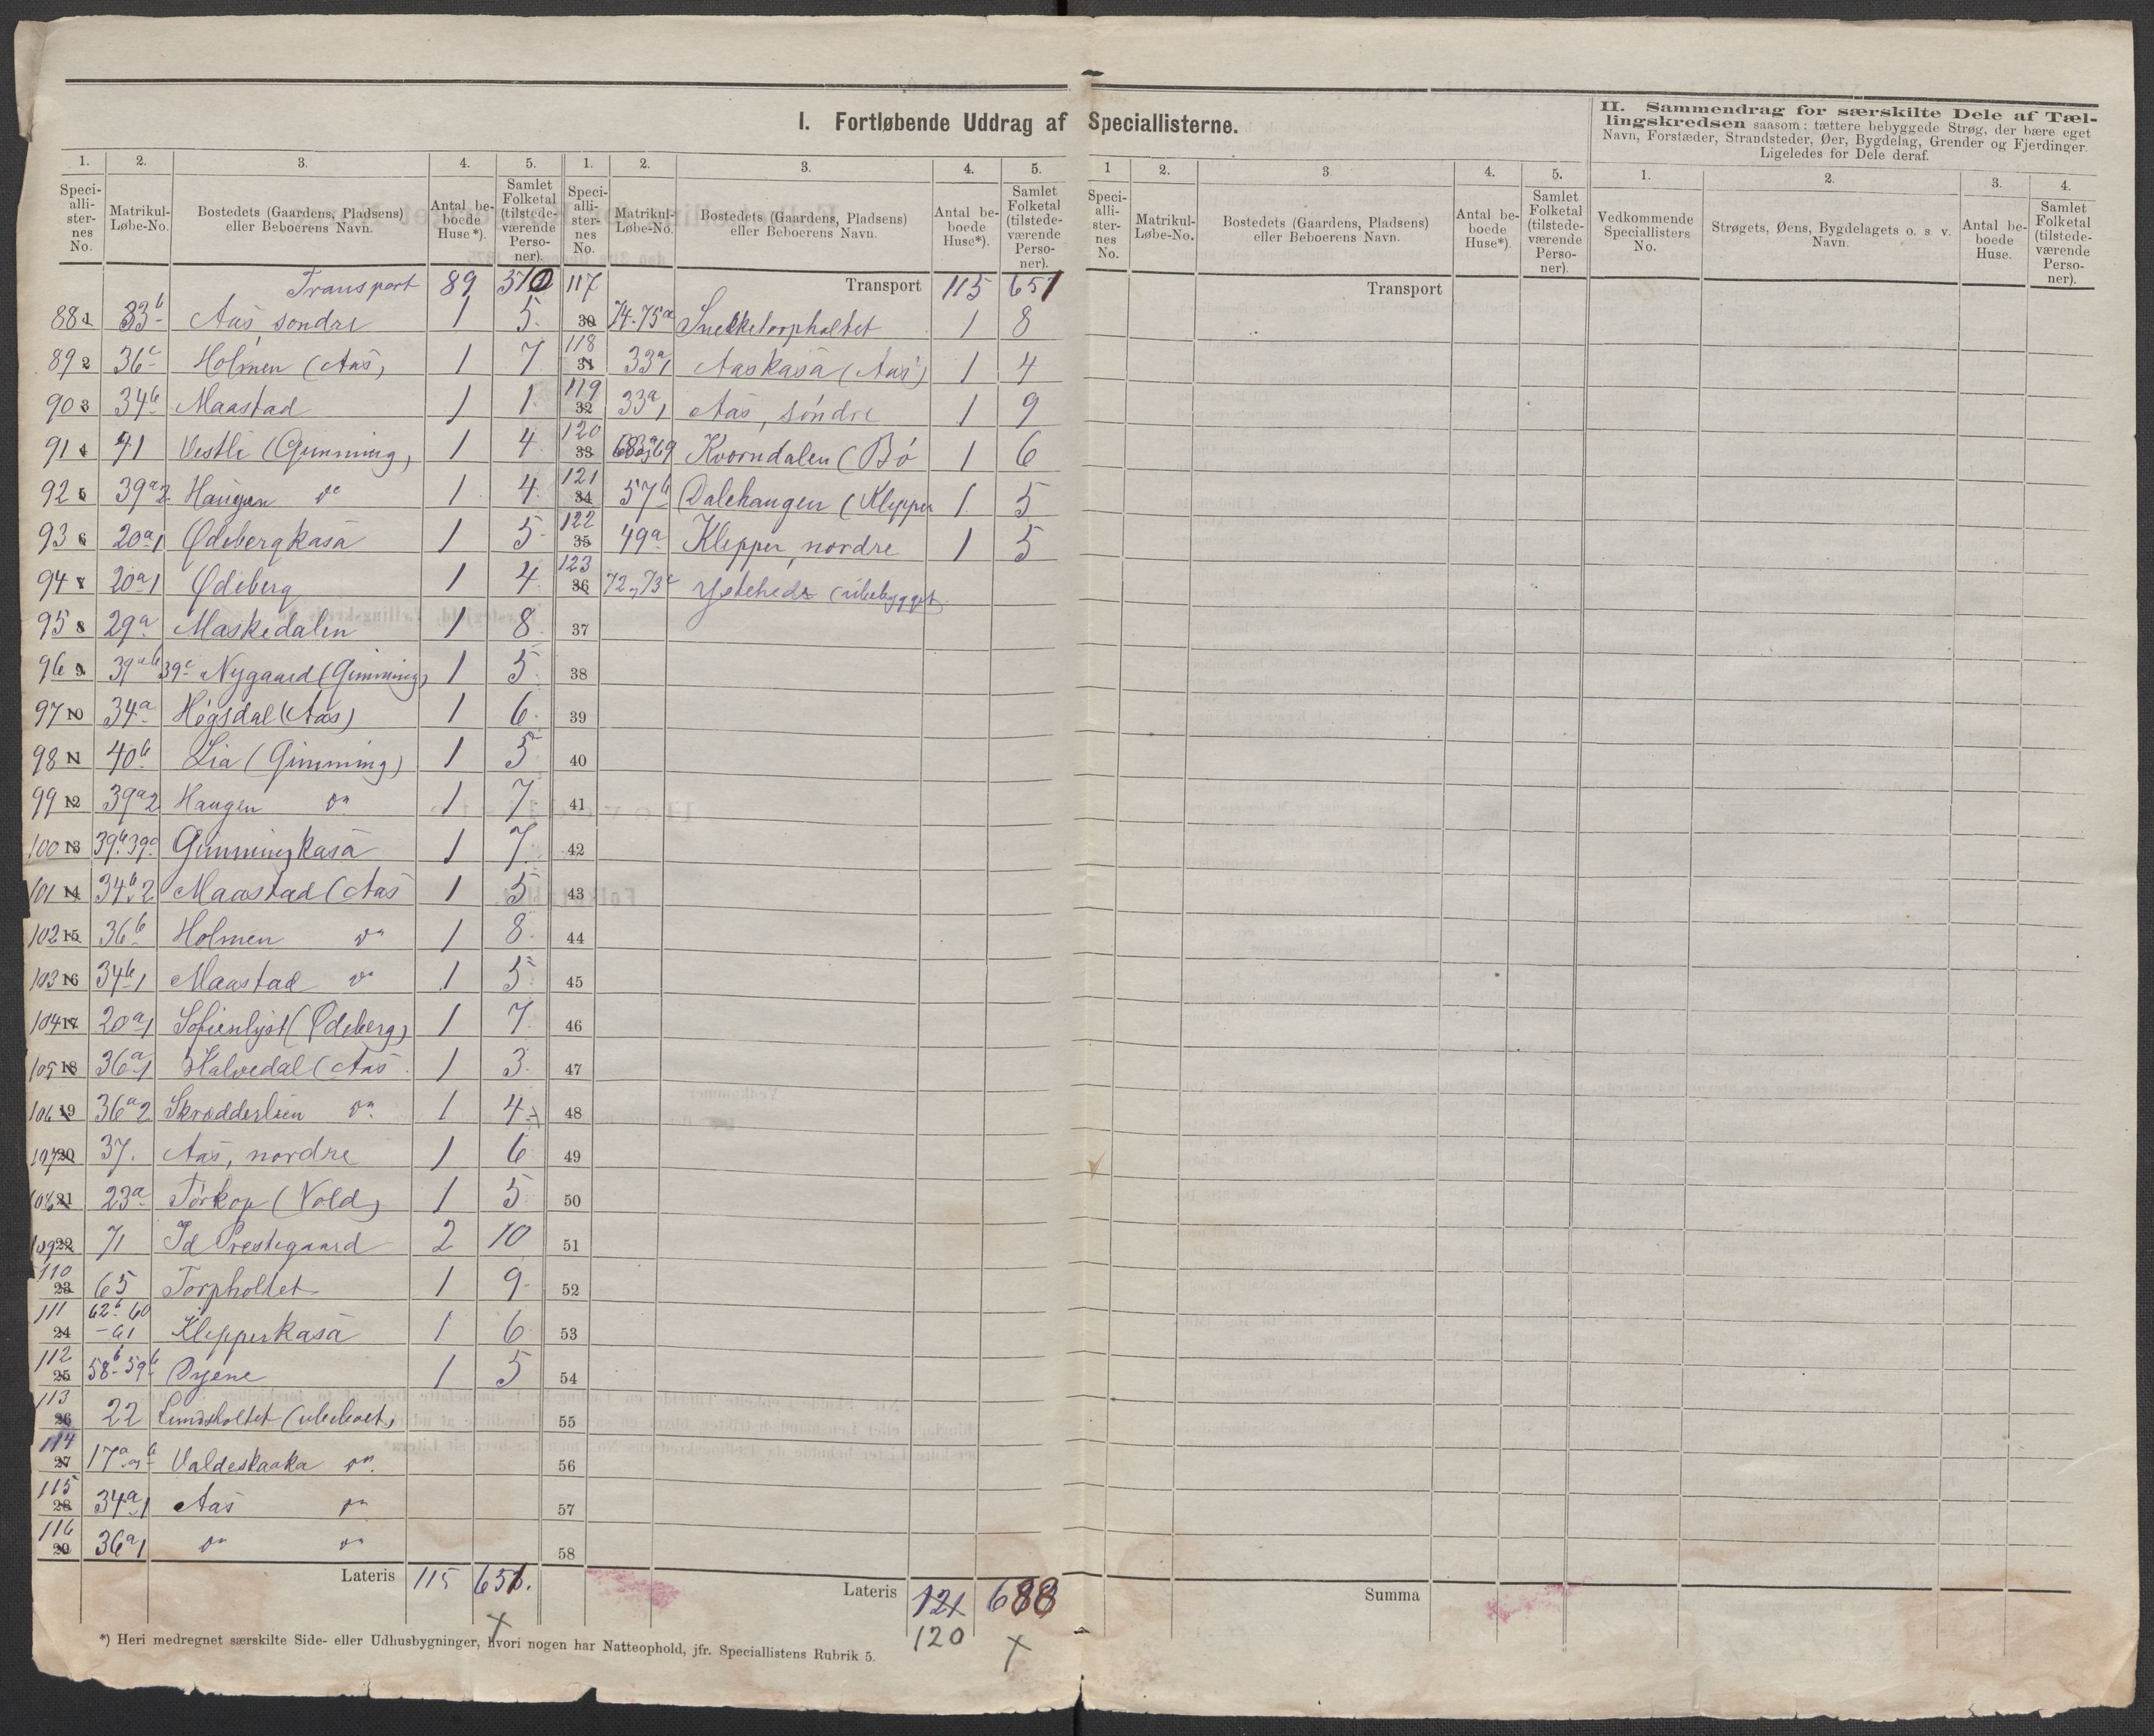 I. Fortløbende Uddrag af Speciallisterne.
II. Sammendrag for særskilte Dele af Tæl-
lingskredsen saasom: tættere bebyggede Strøg, der bære eget
Navn, Forstæder, Strandsteder, Øer, Bygdelag, Grender og Fjerdinger.
Ligeledes for Dele deraf.
1. 2. 3. 4. 5.
Speci-alli-ster-nes No. Matrikul-Løbe-No. Bostedets (Gaardens, Pladsens) eller Beboerens Navn. Antal be-boede Huse*). Samlet Folketal (tilstede-værende Perso-ner).
Transport 89 510
88 1 33b Aas søndre 1 5.
89 2 36c Holmen (Aas) 1 7
90 3 34b Maastad 1 1.
91 4 41 Vestli (Gimming) 1 4
92 5 39a2 Haugen do 1 4.
93 6 20a1 Ødebergkasa 1 5
94 7 20a1 Ødeberg 1 4.
95 8 29a Maskedalen 1 8
96 9 39ab 39c Nygaard (Gimming) 1 5.
97 10 34a Høgsdal (Aas) 1 6.
98 11 40b Lia (Gimming) 1 5
99 12 39a2 Haugen do 1 7
100 13 39b 39c Gimmingkasa 1 7.
101 14 34b2 Maastad (Aas 1 5
102 15 36b Holmen do 1 8.
103 16 34b1 Maastad do 1 5.
104 17 20a1 Sofienlyst (Ødeberg) 1 7
105 18 36a1 Halvedal (Aas 1 3.
106 19 36a2 Skrædderlien do 1 4
107 20 37. Aas, nordre 1 6
108 21 23a Torkop (Vold) 1 5
109 22 71 Id Prestegaard 2 10
110 23 65 Torpholtet 1 9.
111 24 62b 60 - 61 Klepperkasa 1 6
112 25 58b-59b Øyene 1 5
113 26 22 Lundsholtet (ubeboet)
114 27 17a og b Valdeskaaka do.
115 28 34a1 Aas do
116 29 36a1 do do
Lateris 115 651.
1. 2. 3. 4. 5.
Speci-alli-ster-nes No. Matrikul-Løbe-No. Bostedets (Gaardens, Pladsens) eller Beboerens Navn. Antal be-boede Huse*). Samlet Folketal (tilstede-værende Perso-ner).
Transport 115 651
117 30 74.75a Snekketorpholtet 1 8
118 31 33a1 Aaskasa (Aas) 1 4
119 32 33a1 Aas, søndre 1 9
120 33 69 Kvorndalen (Bø 1 6
121 34 57b Dalehaugen (Klepper 1 5
122 35 49a Klepper, nordre 1 5
123 36 72 og 73c Ystehede (ubebygget)
37
38
39
40
41
42
43
44
45
46
47
48
49
50
51
52
53
54
55
56
57
58
Lateris 121 688
120
1 2. 3. 4. 5.
Speci-alli-ster-nes No. Matrikul-Løbe-No. Bostedets (Gaardens, Pladsens) eller Beboerens Navn. Antal be-boede Huse*). Samlet Folketal (tilstede-værende Perso-ner).
Transport
Summa
1. 2. 3. 4.
Vedkommende Speciallisters No. Strøgets, Øens, Bygdelagets o. s. v. Navn. Antal be-boede Huse. Samlet Folketal (tilstede-værende Perso-ner).
*) Heri medregnet særskilte Side- eller Udhusbygninger, hvori nogen har Natteophold, jfr. Speciallistens Rubrik 5.